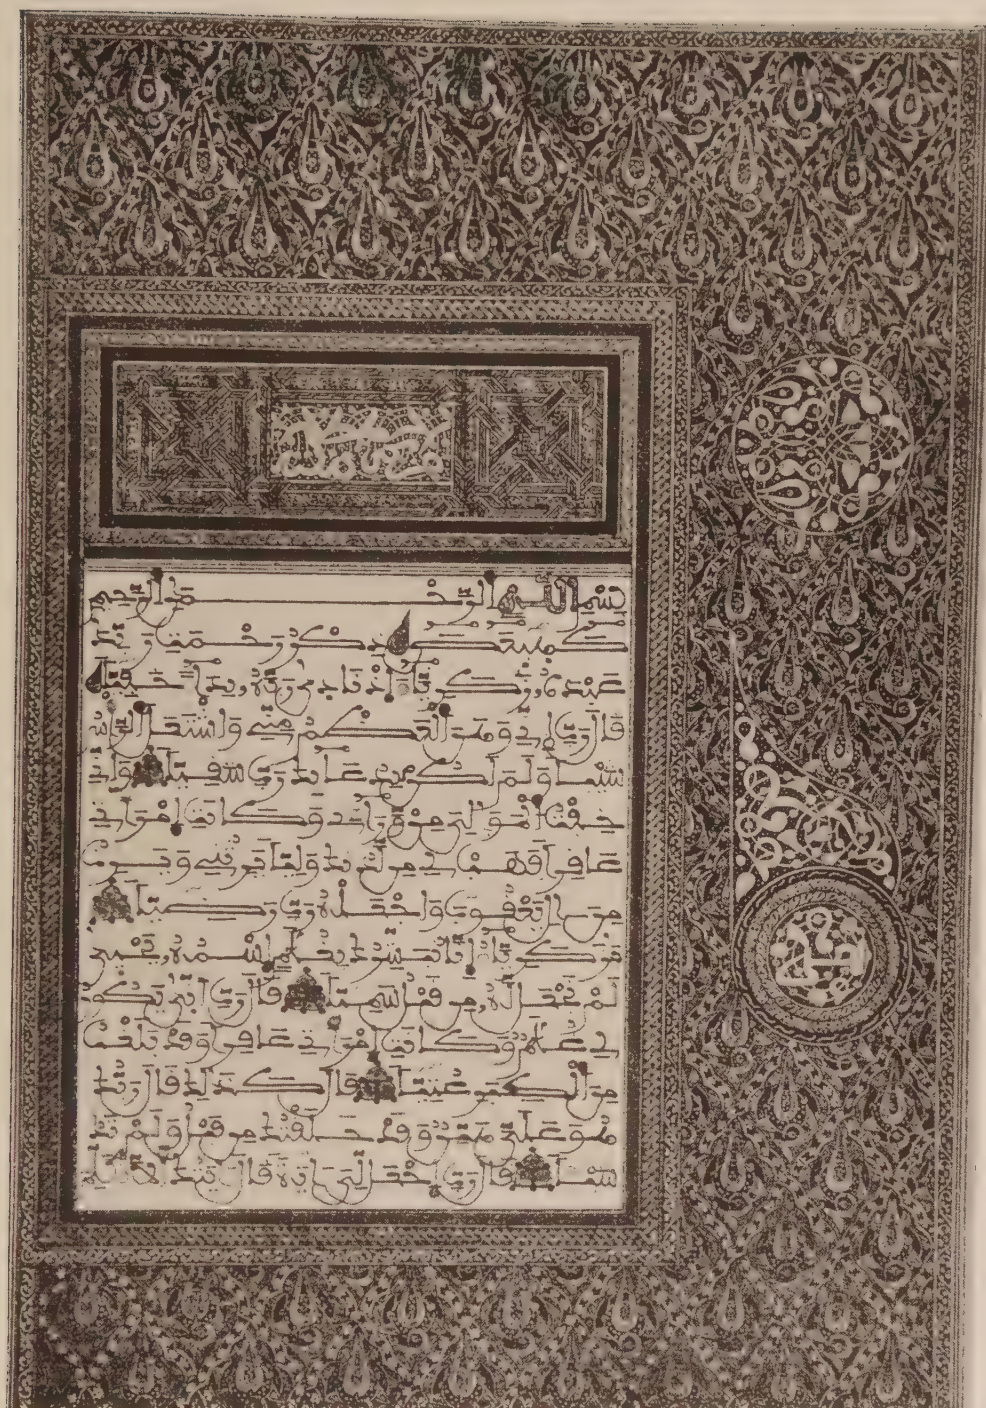 بسم الله الرحمن الرحيم
كهيعص ذكر رحمت ربك
عبده زكرياء اذ نادى ربه نداء خفيا
قال رب اني وهن العظم مني واشتعل الراس
شيبا ولم اكن بدعائك رب شقيا واني
خفت الموالي من وراءي وكانت امراتي
عاقرا فهب لي من لدنك وليا يرثني ويرث
من ال يعقوب واجعله رب رضيا
يزكرياء انا نبشرك بغلم اسمه يحيى
لم نجعل له من قبل سميا قال رب انى يكون
لي غلم وكانت امراتي عاقرا وقد بلغت
من الكبر عتيا قال كذلك قال ربك
هو علي هين وقد خلقتك من قبل ولم تك
شيا قال رب اجعل لي ءاية قال ءايتك الا